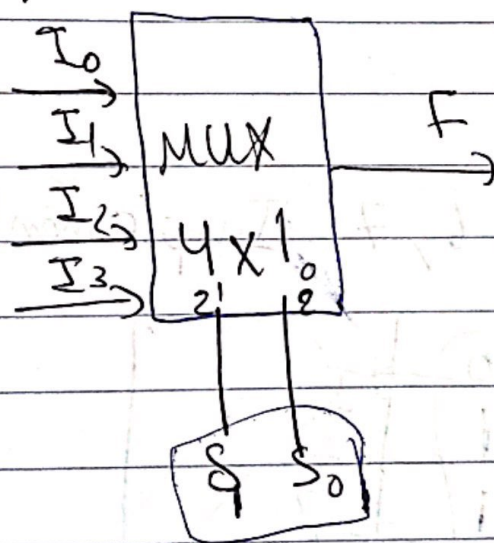 I0
I1
I2
I3
MUX
4x1
2^1 2^0
F
S1 S0